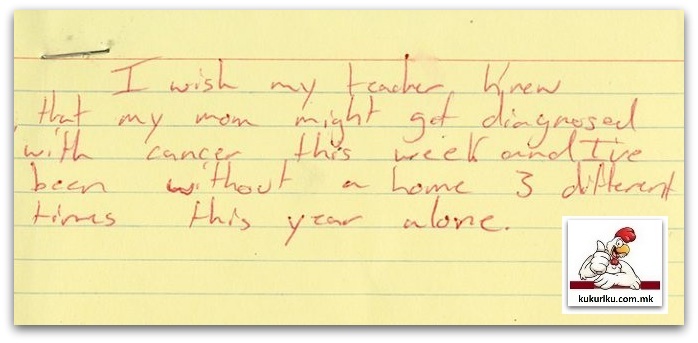 I wish my teacher knew
that my mom might get diagnosed
with cancer this week and I've
been without a home 3 different
times this year alone.
kukurIku.com.mk